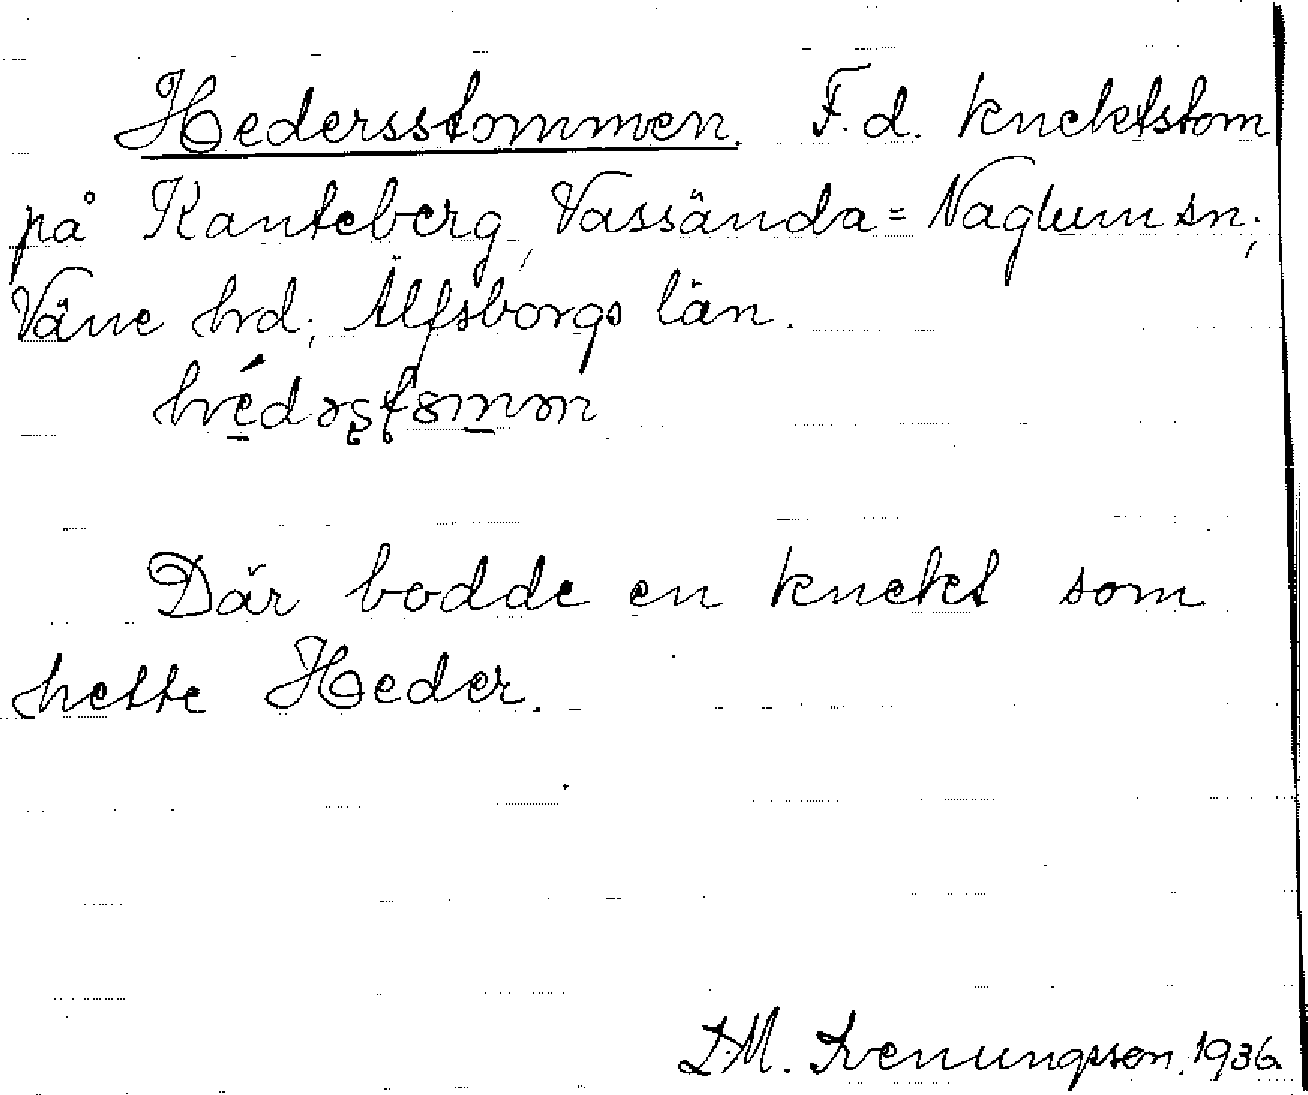 Hedersstommen. F.d. knektstom
på Kanteberg, Vassända=Naglum sn;
Väne hrd; Älfsborgs län.
Där bodde en knekt som
hette Heder.
D.M. Svenungsson, 1936.